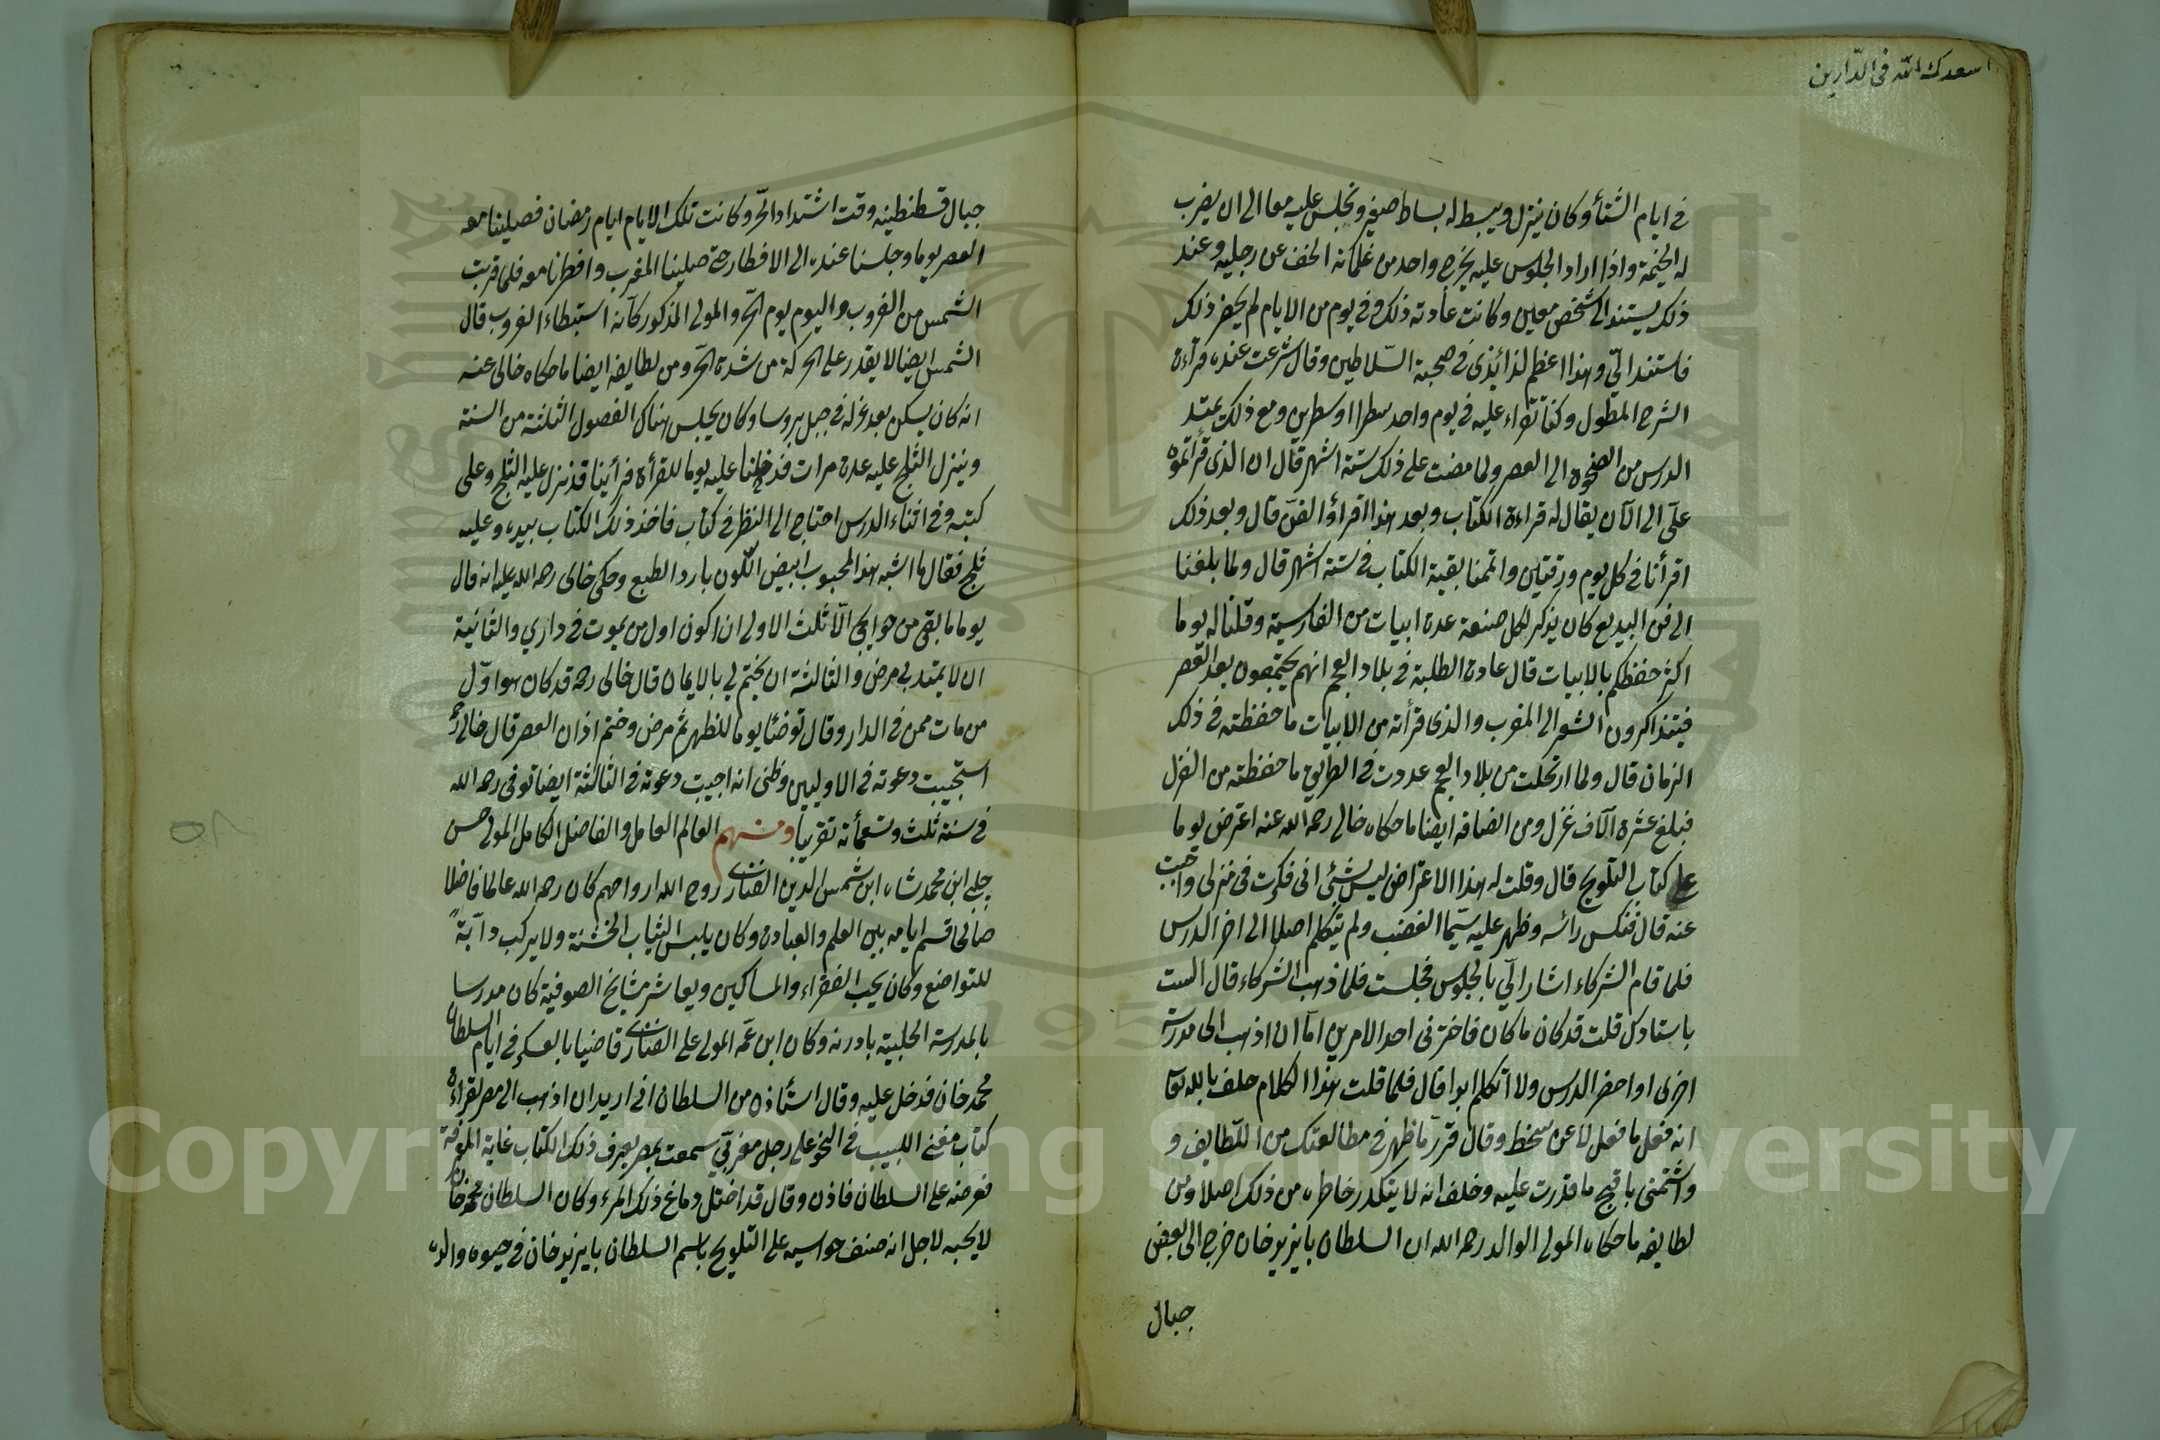 اسعدك الله فى الدارين
فى ايام الشتأ وكان ينزل ويبسط له بساط صغير ونجلس عليه معا الى ان يضرب
له الخيمة واذا اراد الجلوس عليه يخرج واحد من غلمانه الخف عن رجليه وعند
ذلك يستند الى شخص معين وكانت عادته ذلك وفى يوم من الايام لم يحضر ذلك
فاستند الىّ وهذا اعظم لذائذى فى صحبة السّلاطين وقال شرعت عنده قرآءة
الشرح المطول وكنا نقراء عليه فى يوم واحد سطرا او سطرين ومع ذلك يمتد
الدرس من الضحوة الى العصر ولما مضت على ذلك ستة اشهر قال ان الذى قرأتموه
علىّ الى الآن يقال له قراءة الكتاب وبعد هذا اقرأوا الفن قال وبعد ذلك
اقرأنا فى كل يوم ورقتين واتممنا بقية الكتاب فى ستة اشهر قال ولما بلغنا
الى فن البديع كان يذكر لكل صنعة عدة ابيات من الفارسية وقلنا له يوما
اكثر حفظكم بالابيات قال عادة الطلبة فى بلاد العجم انهم يجتمعون بعد العصر
فيتذاكرون الشعر الى المغرب والذى قرأته من الابيات ما حفظته فى ذلك
الزمان قال ولما ارتحلت من بلاد العجم عددت فى الطريق ما حفظته من الغزل
فبلغ عشرة آلاف غزل ومن ايضا ما حكاه خالى رحمه الله عنه اعترض يوما
على كتاب التلويح قال وقلت له هذا الاعتراض ليس بشئ انى فكرت فى منزلى واجبت
عنه قال فنكس رأسه وظهر عليه سيما الغضب ولم يتكلم اصلا الى اخر الدرس
فلما قام الشركاء اشار الىّ بالجلوس فجلست فلما ذهب الشركاء قال الست
باستادك قلت قد كان ما كان فاخترنى احد الامرين امّا ان اذهب الى مدرسة
اخرى او احضر الدرس ولا اتكلم ابدا قال فلما قلت هذا الكلام حلف بالله تعالى
انه فعل ما فعل لا عن سخط وقال قرّر ما ظهر فى مطالعتك من اللطايف و
واشتمنى باقبح ما قدرت عليه وحلف انه لا يتكدر خاطره من ذلك اصلا ومن
لطايفه ما حكاه المولى الوالد رحمه الله ان السلطان بايزيد خان خرج الى بعض
جبال
جبال قسطنطينه وقت اشتداد الحرّ وكانت تلك الايام ايام رمضان فصلينا معه
العصر يوما وجلسنا عنده الى الافطار حتى صلينا المغرب وافطرنا معه فلما قربت
الشمس من الغروب واليوم يوم الحرّ والمولى المذكور كأنه استبطاء الغروب قال
الشمس ايضا لا يقدر على الحركة من شدة الحرّ ومن لطايفه ايضا ما حكاه خالى عنه
انه كان يسكن بعد عزله فى جبل بروسا وكان يجلس هناك الفصول الثلثة من السنة
وينزل الثلج عليه عدة مرات فدخلنا عليه يوما للقرأة فرأينا قد نزل عليه الثلج وعلى
كتبه وفى اثناء الدرس احتاج الى النظر فى كتاب فاخذ ذلك الكتاب بيده وعليه
ثلج فقال ما اشبه هذا المحبوب ابيض اللون بارد الطبع وحكى خالى رحمه الله عليه انه قال
يوما ما بقى من حوايجى الّا ثلث الاولى ان اكون اول من يموت فى دارى والثانية
ان لا يمتد بى مرض والثالثة ان يختم لى بالايمان قال خالى رحمه قد كان هو اوّل
من مات ممن فى الدار وقال توضئا يوما للظهر ثم مرض وختم اذان العصر قال خالى رحمه
استجيبت دعوته فى الاوليين وظنى انه اجيب دعوته فى الثالثة ايضا توفى رحمه الله
فى سنة ثلث وتسعمأنه تقريبا ومنهم العالم العامل والفاضل الكامل المولى حسن
چلبى ابن محمد شاه ابن شمس الدين الفنارى روح الله ارواحهم كان رحمه الله عالما فاضلا
قسم ايامه بين العلم والعبادة وكان يلبس الثياب الخشنة ولا يركب دآبة
للتواضع وكان يحب الفقراء والمساكين ويعاشر مشايخ الصوفية كان مدرسا
بالمدرسة الحلبية بادرنه وكان ابن عمّه المولى على الفنارى قاضيا بالعسكر فى ايام السلطان
محمد خان فدخل عليه وقال استأذن من السلطان انى اريد ان اذهب الى مصر لقراءة
كتاب مغنى اللبيب فى النحو على رجل مغربى سمعت بمصر يعرف ذلك الكتاب غاية المعرفة
فعرضه على السلطان فاذن وقال قد اختل دماغ ذلك المرء وكان السلطان محمد خان
لا يحبه لاجل انه صنف حواشيه على التلويح باسم السلطان بايزيد خان فى حيوة والده
Copyright © King Saud University